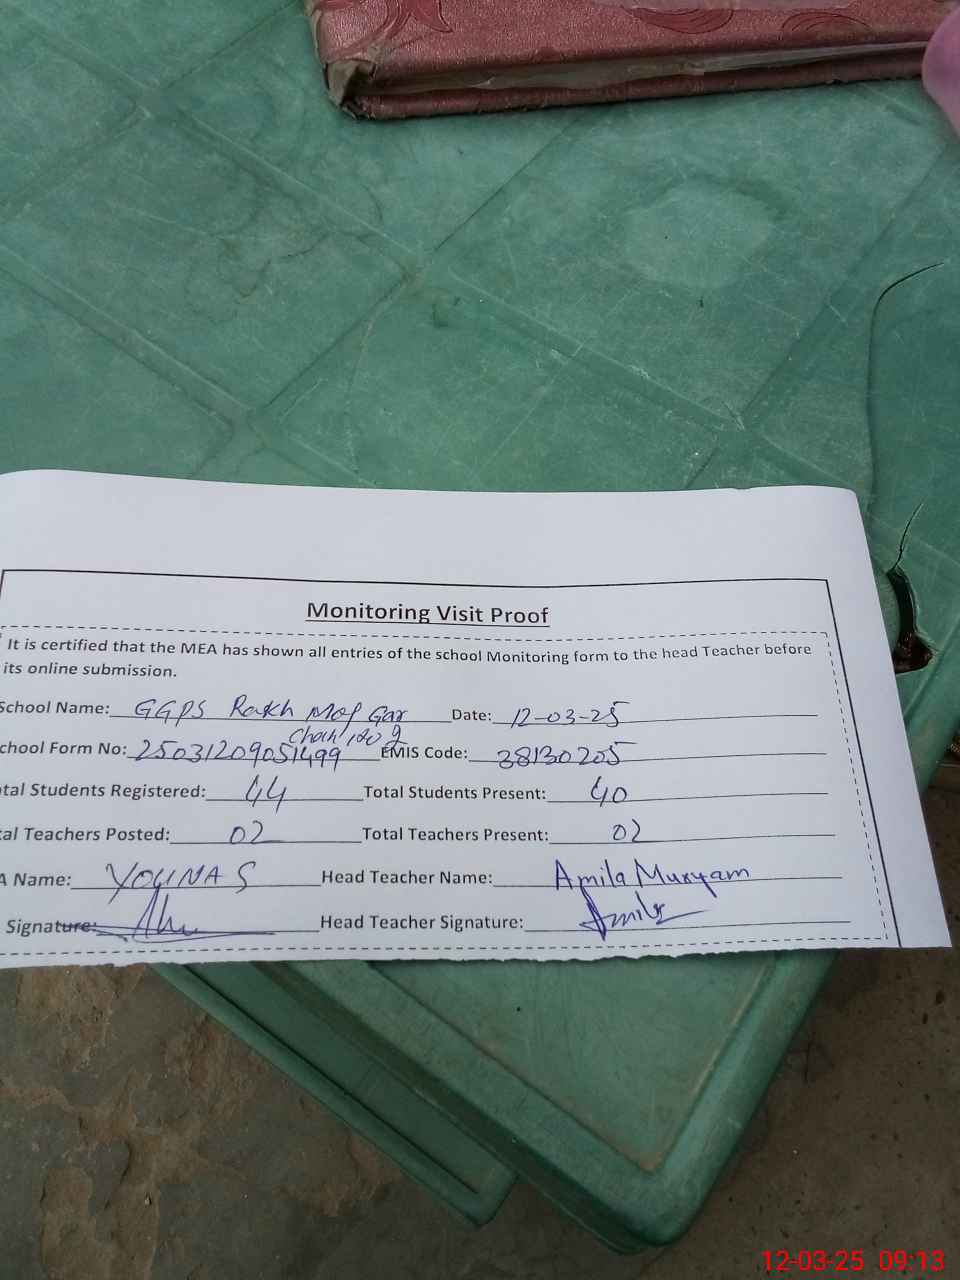 Monitoring Visit Proof
It is certified that the MEA has shown all entries of the school Monitoring form to the head Teacher before
its online submission.
School Name: GGPS Rakh Mof Gar Date: 12-03-25
chah 120 g
chool Form No: 25031209051499 EMIS Code: 38130205
tal Students Registered: 44 Total Students Present: 40
al Teachers Posted: 02 Total Teachers Present: 02
A Name: YOUNAS Head Teacher Name: Amila Muryam
Signature: Head Teacher Signature: Amila
12-03-25 09:13